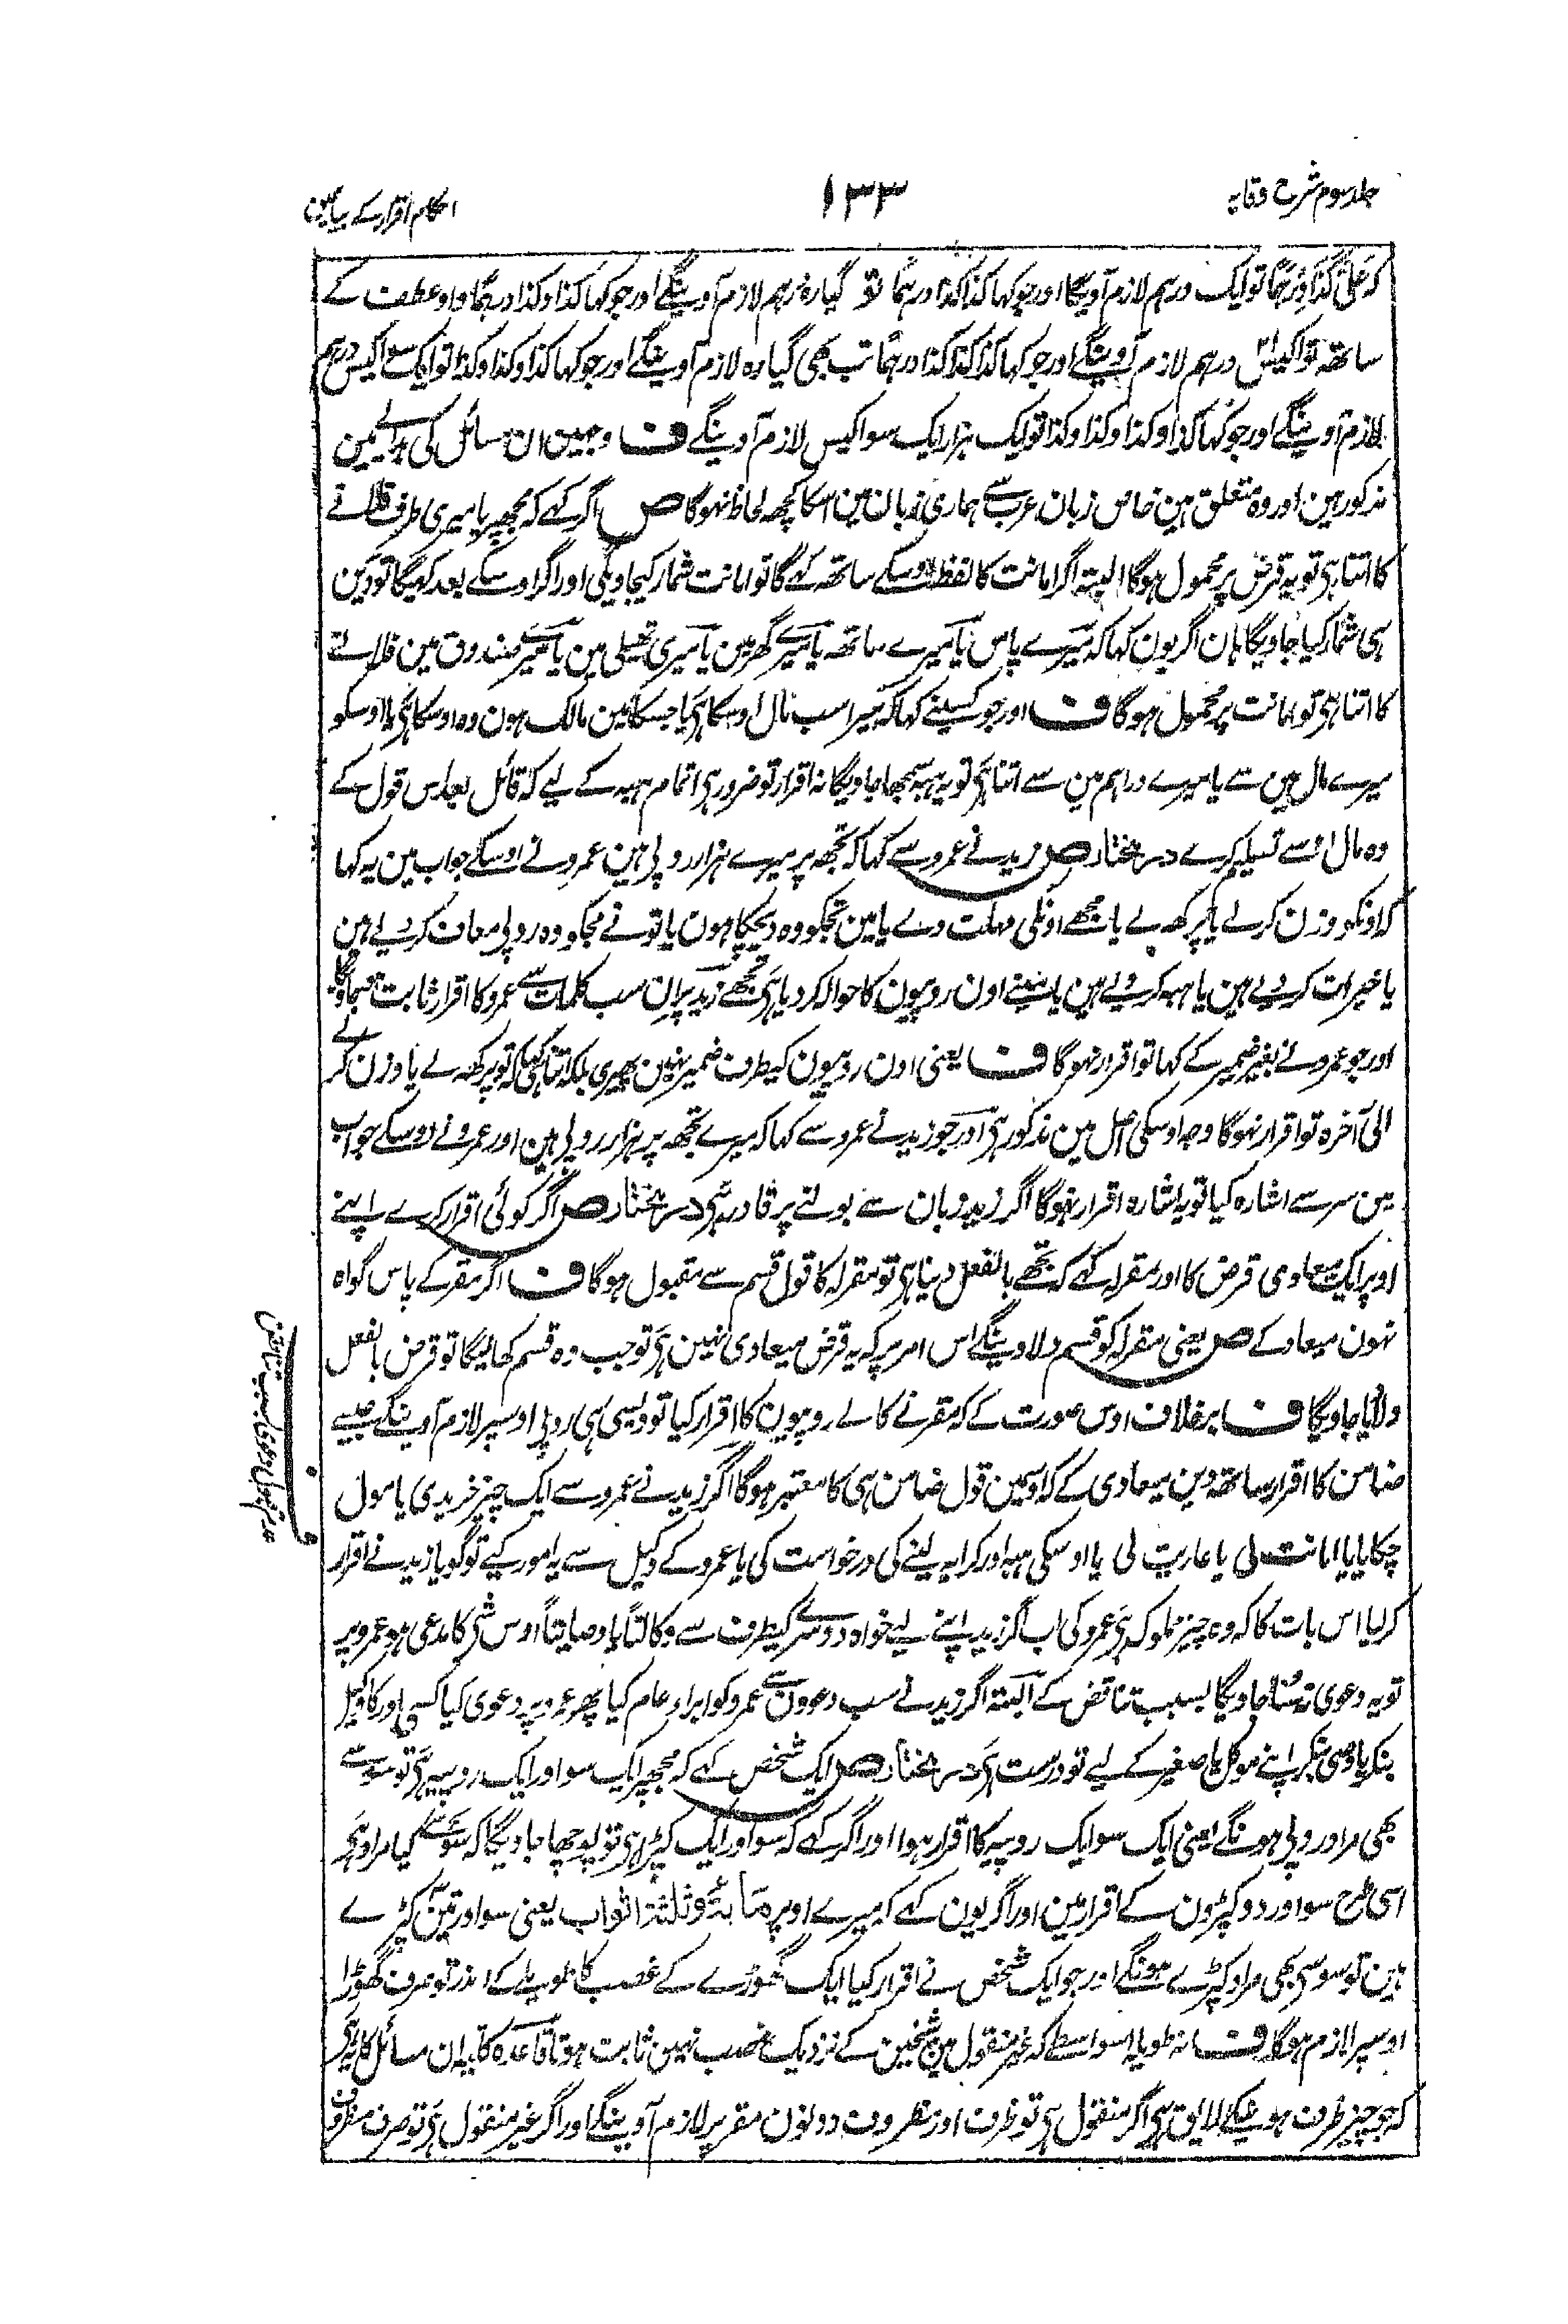 جلد سوم شرح وقایہ
۱۳۳
احکام اقرار کے بیانمین
کہ عَلَیَّ کَذَا دِرْہَمًا تو ایک درہم لازم آویگا اور جو کہا کذا کذا درہمًا تو گیارہ درہم لازم آوینگے اور جو کہا کذا وکذا درہمًا واو عطف کے
ساتھہ تو اکیس درہم لازم آوینگے اور جو کہا کذا کذا کذا درہمًا تب بھی گیارہ لازم آوینگے اور جو کہا کذا وکذا وکذا تو ایک سو اکیس درہم
لازم آوینگے اور جو کہا کذا وکذا وکذا وکذا تو ایک ہزار ایک سو اکیس لازم آوینگے ف وجہین ان مسائل کی ہدایے مین
مذکور ہین اور وہ متعلق ہین خاص زبان عرب سے ہماری زبان مین اسکا کچھہ لحاظ نہوگا ص اگر کہے کہ مجھپر یا میری طرف فلانے
کا اتنا ہی تو یہ قرض پر محمول ہوگا البتہ اگر امانت کا لفظ اوسکے ساتھہ کہے گا تو امانت شمار کیجاویگی اور اگر اوسکے بعد کہیگا تو دَین
ہی شمار کیا جاویگا ہان اگر یون کہا کہ میرے پاس یا میرے ساتھہ یا میرے گھر مین یا میری تھیلی مین یا میرے صندوق مین فلانے
کا اتنا ہی تو امانت پر محمول ہوگا ف اور جو کسینے کہا کہ میرا سب مال اوسکا ہی یا جسکا مین مالک ہون وہ اوسکا ہی یا اوسکو
میرے مال مین سے یا میرے دراہم مین سے اتنا ہی تو یہ ہبہ سمجھا جاویگا نہ اقرار تو ضرور ہی اتمام ہبہ کے لیے کہ قائل بعد اس قول کے
وہ مال اوسے تسلیم کرے درمختار ص زید نے عمرو سے کہا کہ تجھہ پر میرے ہزار روپی ہین عمرو نے اوسکے جواب مین یہ کہا
کہ اونکو وزن کر لے یا پرکھہ لے یا مجھے اونکی مہلت دے یا مین تجکو وہ دیچکا ہون یا تو نے مجکو وہ روپی معاف کر دیے ہین
یا خیرات کر دیے ہین یا ہبہ کر دیے ہین یا مینے اون روپیون کا حوالہ کر دیا ہی تجھے زید پر ان سب کلمات سے عمرو کا اقرار ثابت ہو جاویگا
اور جو عمرو نے بغیر ضمیر کے کہا تو اقرار نہوگا ف یعنی اون روپیون کیطرف ضمیر نہین پھیری بلکہ اتنا ہی کہا کہ تو پرکھہ لے یا وزن کر لے
الیٰ آخرہ تو اقرار نہوگا وجہ اوسکی اصل مین مذکور ہی اور جو زید نے عمرو سے کہا کہ میرے تجھہ پر ہزار روپی ہین اور عمرو نے اوسکے جواب
مین سر سے اشارہ کیا تو یہ اشارہ اقرار نہوگا اگر زید زبان سے بولنے پر قادر ہی درمختار ص اگر کوئی اقرار کرے اپنے
اوپر ایک میعادی قرض کا اور مقرلہ کہے کہ تجھے بالفعل دینا ہی تو مقرلہ کا قول قسم سے مقبول ہوگا ف اگر مقر کے پاس گواہ
نہون میعاد کے ص یعنی مقرلہ کو قسم دلاوینگے اس امر پر کہ یہ قرض میعادی نہین ہی تو جب وہ قسم کھالیگا تو قرض بالفعل
دلایا جاویگا ف برخلاف اوس صورت کے کہ مقر نے کالے روپیون کا اقرار کیا تو ویسی ہی روپی اوسپر لازم آوینگے جیسے
ضامن کا اقرار ساتھہ دین میعادی کے کہ اوسمین قول ضامن ہی کا معتبر ہوگا اگر زید نے عمرو سے ایک چیز خریدی یا مول
چکایا یا امانت لی یا عاریت لی یا اوسکی ہبہ اور کرایہ لینے کی درخواست کی یا عمرو کے وکیل سے یہ امور کیے تو گویا زید نے اقرار
کر لیا اس بات کا کہ وہ چیز مملوک ہی عمرو کی اب اگر زید اپنے لیے خواہ دوسرے کیطرف سے وکالتًا یا وصایتًا اوس شی کا مدعی ہو عمرو پر
تو یہ دعوی نہ سُنا جاویگا بسبب تناقض کے البتہ اگر زید نے سب دعوون سے عمرو کو ابراء عام کیا پھر عمرو پر دعوی کیا کسی اور کا وکیل
بنکر یا وصی بنکر اپنے موکل یا صغیر کے لیے تو درست ہی درمختار ص ایک شخص کہے کہ مجھپر ایک سو اور ایک روپیہ ہی تو سو سے
بھی مراد روپی ہونگے یعنی ایک سو ایک روپیہ کا اقرار ہوا اور اگر کہے کہ سو اور ایک کپڑا ہی تو پوچھا جاویگا کہ سو سے کیا مراد ہی
اسی طرح سو اور دو کپڑون کے اقرار مین اور اگر یون کہے کہ میرے اوپر مأیۃ وثلثۃ اثواب یعنی سو اور تین کپڑے
ہین تو سو سے بھی مراد کپڑے ہونگے اور جو ایک شخص نے اقرار کیا ایک گھوڑے کے غصب کا طویلے کے اندر تو صرف گھوڑا
اوسپر لازم ہوگا ف نہ طویلہ اسواسطے کہ غیر منقول مین شیخین کے نزدیک غصب نہین ثابت ہوتا قاعدہ کلیہ ان مسائل کا یہ ہی
کہ جو چیز ظرف ہونیکے لایق ہی اگر منقول ہی تو ظرف اور مظروف دونون مقر پر لازم آوینگے اور اگر غیر منقول ہی تو صرف مظروف